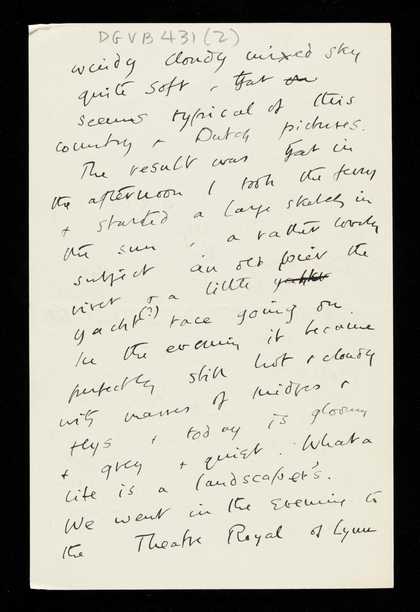 DGVB 431 (2)
windy cloudy mixed sky
quite soft, & that
seems typical of this
country & Dutch pictures.
The result was that in
the afternoon I took the ferry
& started a large sketch in
the sun, a rather lovely
subject, an old pier the
river & a little
yacht (?) race going on.
In the evening it became
perfectly still hot & cloudy
with masses of midges &
flys & today is gloomy
& grey & quiet. What a
life is a landscaper's.
We went in the evening to
the Theatre Royal of Lynn